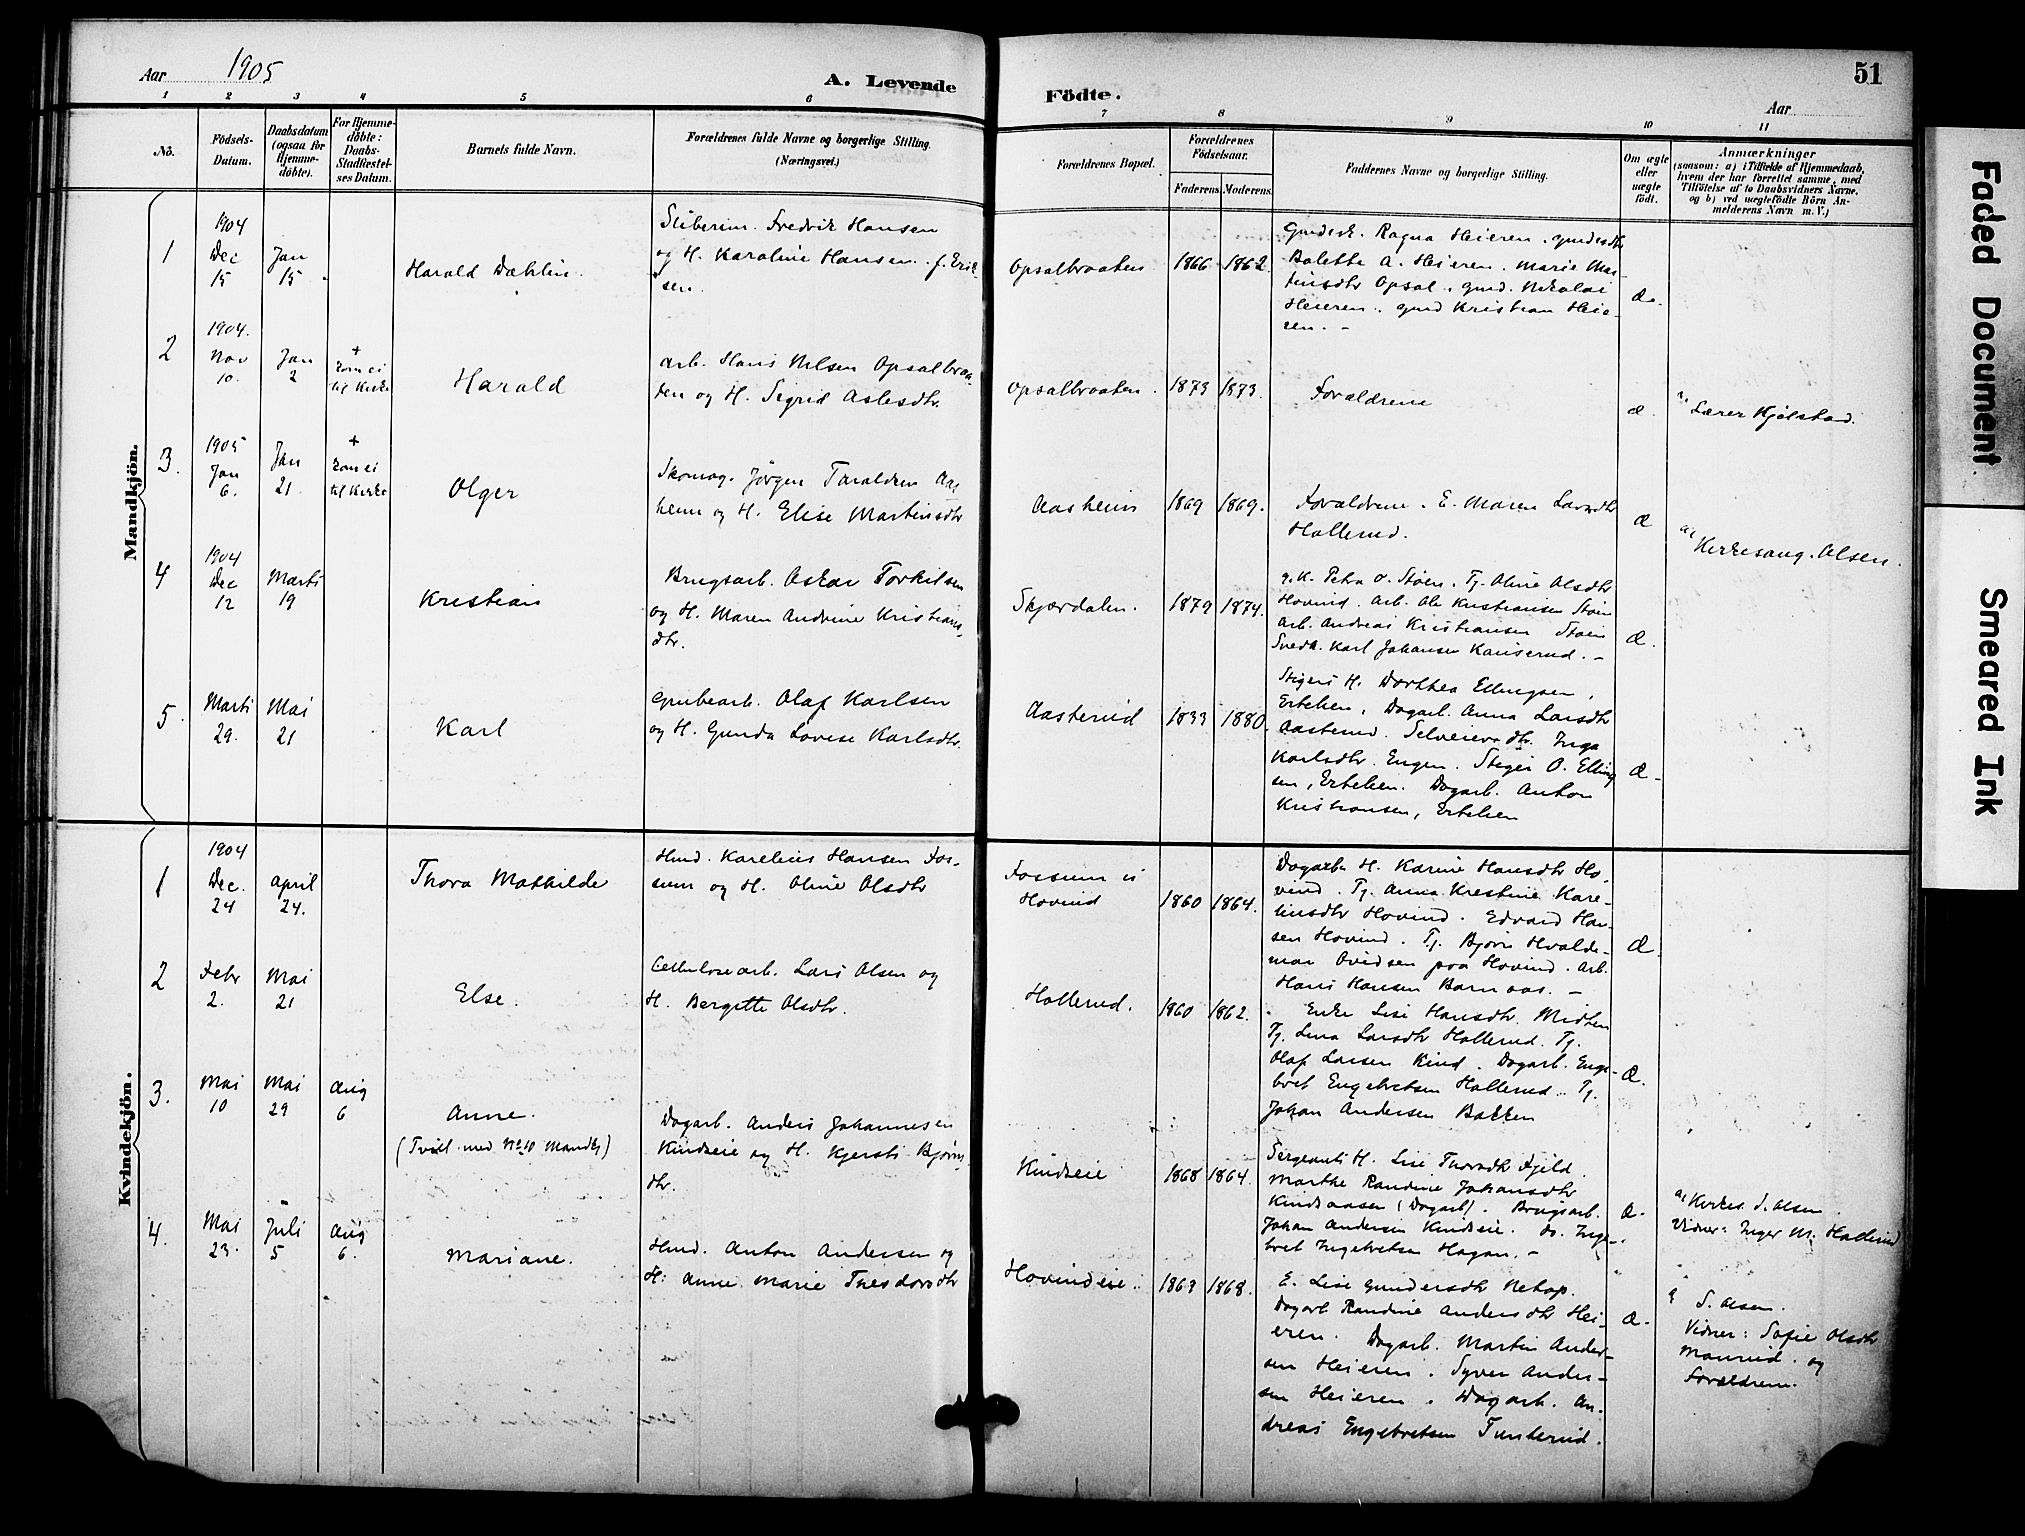 Aar 1905
A. Levende
Födte.
51
Aar
1
2
3
4
5
6
7
8
9
10
11
Nò.
Födsels-
Datum.
Daabsdatum
(ogsaa for
Hjemme-
döbte).
For Hjemme-
döbte:
Daabs-
Stadfæstel-
ses Datum.
Barnets fulde Navn.
Forældrenes fulde Navne og borgerlige Stilling.
(Næringsvei.)
Forældrenes Bopæl.
Forældrenes
Födselsaar.
Faderens.
Moderens.
Faddernes Navne og borgerlige Stilling.
Om ægte
eller
uægte
födt.
Anmærkninger
(saasom: a) i Tilfælde af Hjemmedaab,
hvem der har forrettet samme, med
Tilföielse af to Daabsvidners Navne,
og b) ved uægtefödte Börn An-
melderens Navn m. V.)
Mandkjön.
1
1904
Dec
15
Jan
15
Harald Dahlin.
Sliberim. Fredrik Hansen
og H. Karoline Hansen. f. Erik-
sen.
Opsalbraaten
1866
1862.
Gmdsk. Ragna Heieren. gmdsdtr
Balette A. Heieren. Marie Mar-
tinsdtr Opsal. gmd. Nikolai
Heieren. gmd Kristian Heie-
ren. -
Æ.
2
1904.
Nov
10.
Jan
2
+
kom ei
til Kirke
Harald
Arb. Hans Nilsen Opsalbraa-
ten og H. Sigrid Aslesdtr.
Opsalbraaten.
1873
1873.
Forældrene
Æ.
a, Lærer Kjølstad.
3.
1905
Jan
6.
Jan
21.
+
kom ei
til Kirke
Olger
Skomag. Jørgen Taraldsen Aas-
heim og H. Elise Martinsdtr
Aasheim
1869
1869.
Forældrene. E. Maren Larsdtr
Hallerud.
Æ
a, Kirkesang. Olsen.
4
1904
Dec
12
Marts
19
Kristian
Brugsarb. Oskar Torkilsen
og H. Maren Andrine Kristians-
dtr.
Skjærdalen.
1879
1874.
g. K. Petra O. Støen. Tj. Oline Olsdtr
Hovind. Arb. Ole Kristiansen Støen
Arb. Andreas Kristiansen Støen
Snedk. Karl Johansen Kanserud. -
Æ.
5.
Marts
29.
Mai
21
Karl
Grubearb. Olaf Karlsen
og H. Gunda Lovise Karlsdtr.
Aasterud
1833
1880.
Stigers H. Dorthea Ellingsen,
Ertelien, Dagarb. Anna Larsdtr
Aasterud. Selveierdtr. Inga
Karlsdtr. Engen. Stiger O. Elling
sen, Ertelien. Dagarb. Anton
Kristiansen, Ertelien
Æ-
Kvindekjön.
1
1904
Dec.
24
April
24.
Thora Mathilde
Hmd. Karelius Hansen Fos-
sum og H. Oline Olsdtr
Fossum u
Hovind
1860
1864.
Dagarb H. Karine Hansdtr Ho-
vind. Tj. Anna Kristine Kare-
liusdtr Hovind. Edvard Han-
sen Hovind. Tj. Bjørn Hvalde-
mar Ovidsen paa Hovind. Arb.
Hans Hansen Barnaas. -
Æ.
2
Febr
2.
Mai
21
Else.
Cellulosearb. Lars Olsen og
H. Bergitte Olsdtr.
Hallerud.
1860
1862.
Enke Lise Hansdtr. Midten
Tj. Lina Larsdtr Hallerud. Tj.
Olaf Larsen Kind. Dagarb. Enge-
bret Engebretsen Hallerud. Tj.
Johan Andersen Bakken
Æ.
3.
Mai
10
Mai
29
Aug
6
Anne.
(Tvill. med No 10 Mandkj)
Dagarb. Anders Johannesen
Kindseie og H. Kjersti Bjørns
dtr.
Kindseie
1868
1864.
Sergeants H. Lise Thorsdtr Fjeld.
Marthe Randine Johansdtr
Kindsaasen (Dagarb). Brugsarb.
Johan Andersen Kindseie. Do. Inge-
bret Ingebretsen Hagan. -
Æ.
a, Kirkes. S. Olsen.
Vidner: Inger M. Hallerud
4.
Mai
23.
Juli
5
Aug
6.
Mariane.
Hmd. Anton Andersen og
H: Anne Marie Thesdorsdtr
Hovindeie.
1863
1868.
E. Lise Gundersdtr Rehop.
Dagarb Randine Andersdtr Hei-
eren. Dagarb. Martin Ander-
sen Heieren. Syver Ander-
sen Heieren. Dagarb. An-
dreas Engebretsen Tunterud.
Æ.
a S. Olsen.
Vidner: Sofie Olsdtr
Maurud. og
Forældrene.
Faded Document.
Smeared Ink